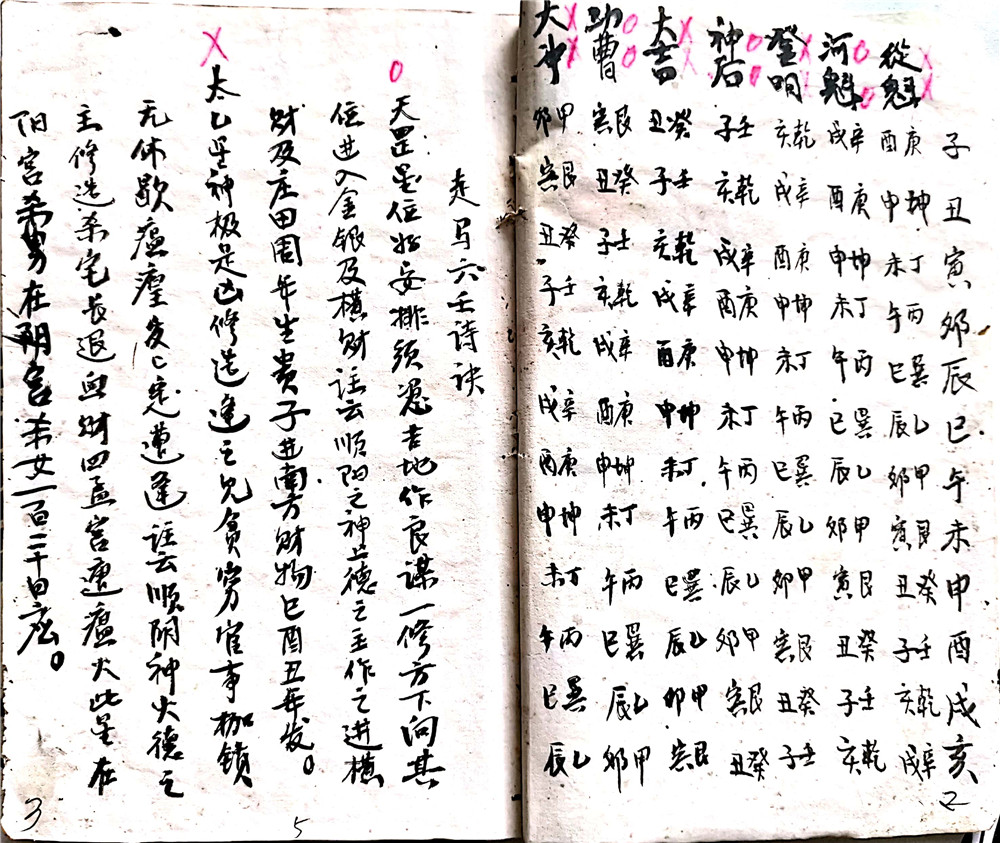 子丑寅卯辰巳午未申酉戌亥
從魁 庚酉 坤申 丁未 丙午 巽巳 乙辰 甲卯 艮寅 癸丑 壬子 乾亥 辛戌
河魁 辛戌 庚酉 坤申 丁未 丙午 巽巳 乙辰 甲卯 艮寅 癸丑 壬子 乾亥
登明 乾亥 辛戌 庚酉 坤申 丁未 丙午 巽巳 乙辰 甲卯 艮寅 癸丑 壬子
神后 壬子 乾亥 辛戌 庚酉 坤申 丁未 丙午 巽巳 乙辰 甲卯 艮寅 癸丑
大吉 癸丑 壬子 乾亥 辛戌 庚酉 坤申 丁未 丙午 巽巳 乙辰 甲卯 艮寅
功曹 艮寅 癸丑 壬子 乾亥 辛戌 庚酉 坤申 丁未 丙午 巽巳 乙辰 甲卯
大冲 甲卯 艮寅 癸丑 壬子 乾亥 辛戌 庚酉 坤申 丁未 丙午 巽巳 乙辰
2
走马六壬诗诀
天罡星位好安排须觅吉地作良谋一修方下向其
位进入金银及横财注云顺阳之神土德之主作之进横
财及庄田周年生贵子进南方财物巳酉丑年发。
太乙星神极是凶修造逢之见贫穷官事枷锁
无休歇瘟瘽死亡定遭逢注云顺阴神火德之
主修造杀宅长退血财四孟宫遭瘟火此星在
阳宫杀男在阴宫杀女一百二十日应。
5
3